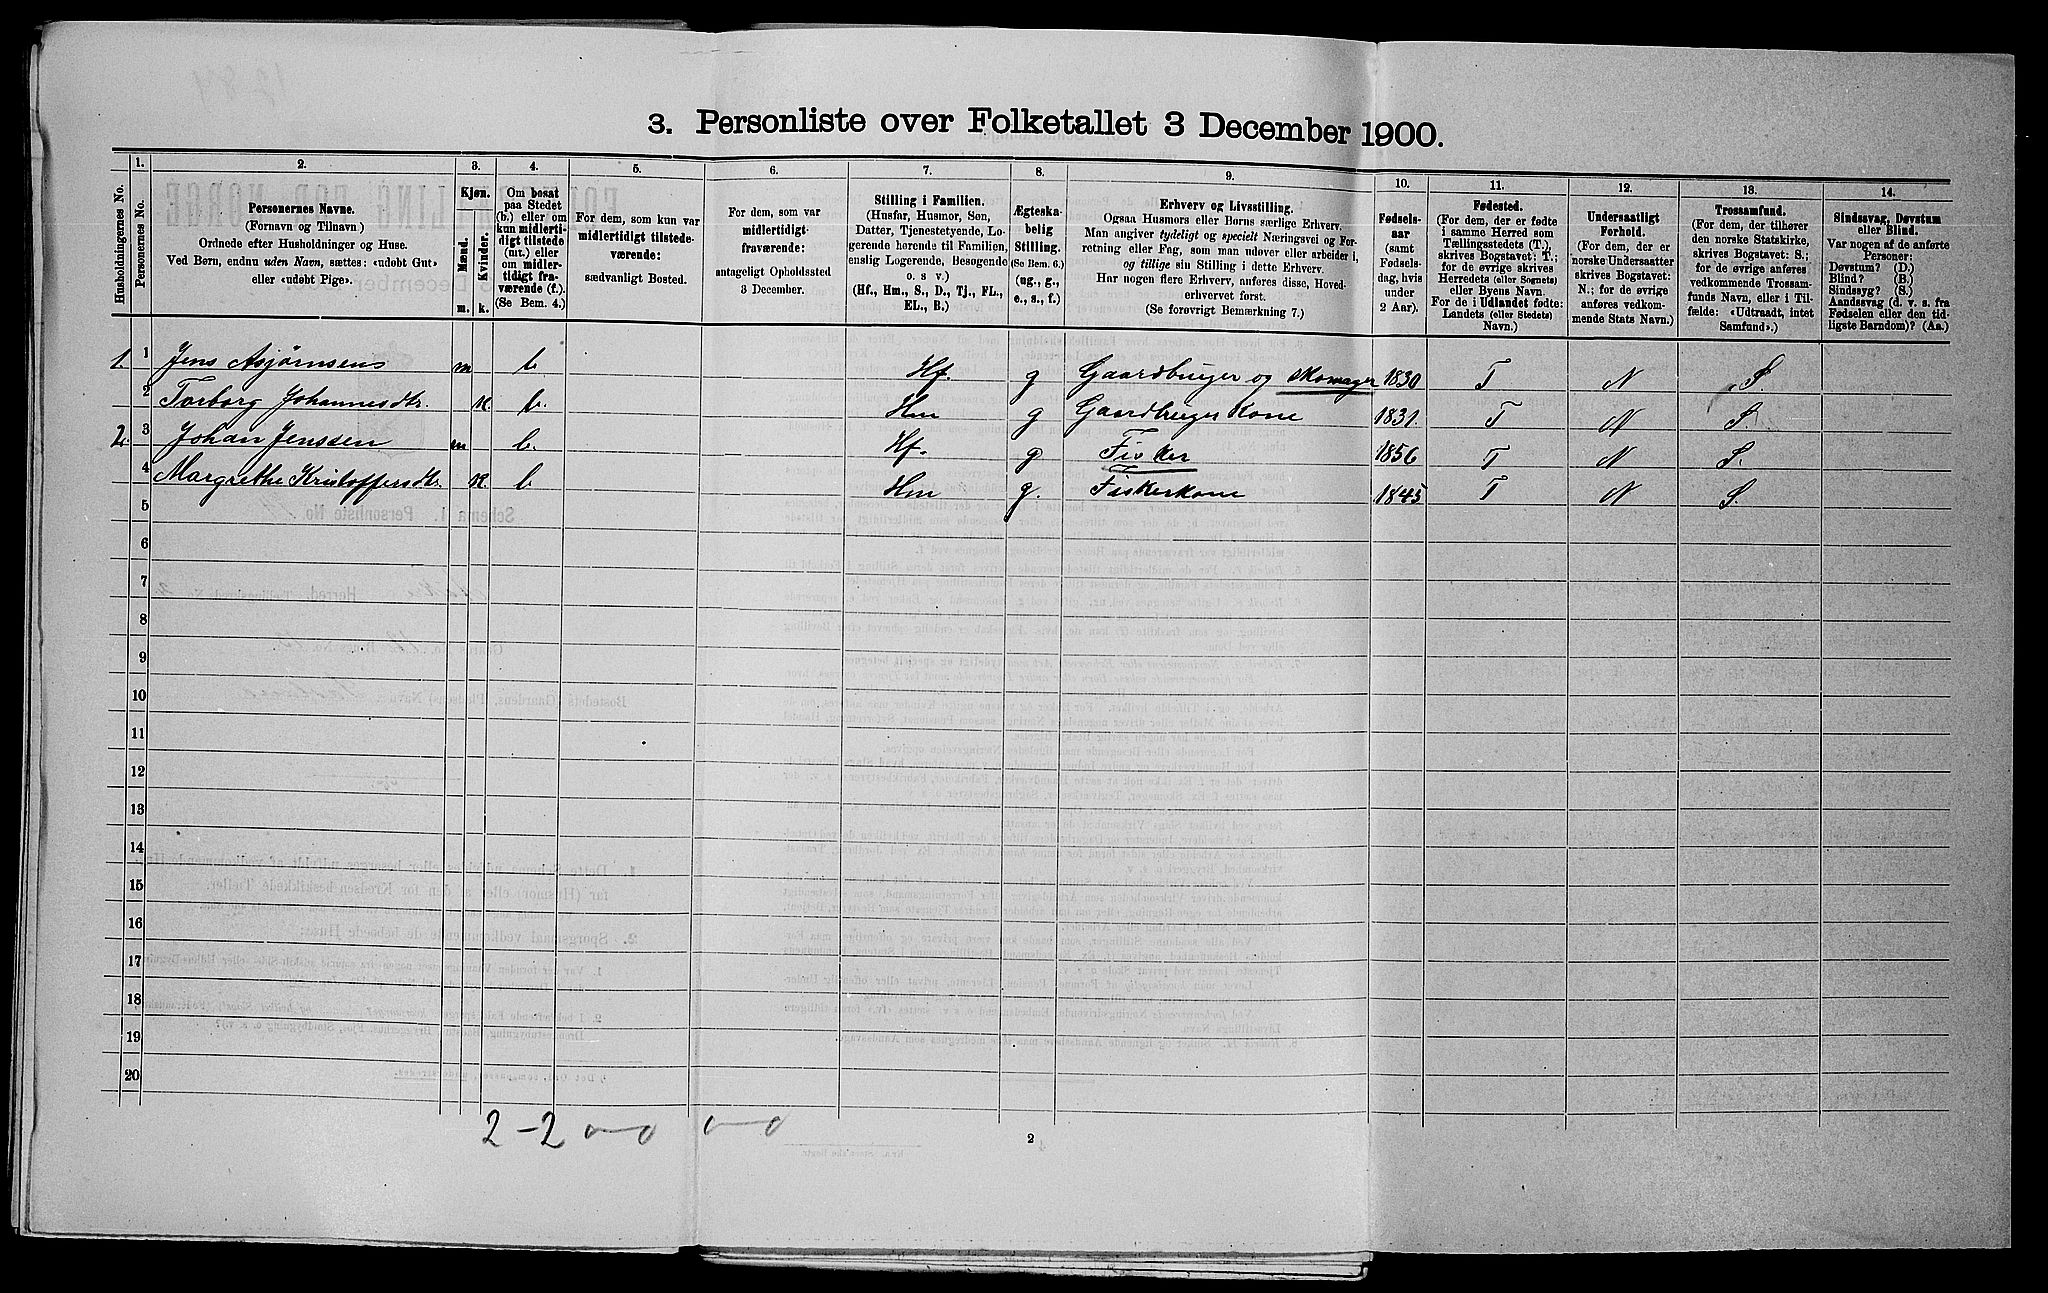 3. Personliste over Folketallet 3 December 1900.
Husholdningernes No.
1.
Personernes No.
2.
Personernes Navne.
(Fornavn og Tilnavn.)
Ordnede efter Husholdninger og Huse.
Ved Børn, endnu uden Navn, sættes: «udøbt Gut»
eller «udøbt Pige».
3.
Kjøn.
Mænd.
Kvinder.
m. k.
4.
Om bosat
paa Stedet
(b.) eller om
kun midlerti-
digt tilstede
(mt.) eller
om midler-
tidigt fra-
værende (f.).
(Se Bem. 4.)
5.
For dem, som kun var
midlertidigt tilstede-
værende:
sædvanligt Bosted.
6.
For dem, som var
midlertidigt
fraværende:
antageligt Opholdssted
3 December.
7.
Stilling i Familien.
(Husfar, Husmor, Søn,
Datter, Tjenestetyende, Lo-
gerende hørende til Familien,
enslig Logerende, Besøgende
o. s v.)
(Hf., Hm., S., D., Tj., FL.,
EL., B.)
8.
Ægteska-
belig
Stilling.
(Se Bem. 6.)
(ug., g.,
e., s., f.)
9.
Erhverv og Livsstilling.
Ogsaa Husmors eller Børns særlige Erhverv.
Man angiver tydeligt og specielt Næringsvei og For-
retning eller Fag, som man udøver eller arbeider i,
og tillige sin Stilling i dette Erhverv.
Har nogen flere Erhverv, anføres disse, Hoved-
erhvervet først.
(Se forøvrigt Bemærkning 7.)
10.
Fødsels-
aar
(samt
Fødsels-
dag, hvis
under
2 Aar).
11.
Fødested.
(For dem, der er fødte
i samme Herred som
Tællingsstedets (T.),
skrives Bogstavet: T.;
for de øvrige skrives
Herredets (eller Sognets)
eller Byens Navn.
For de i Udlandet fødte:
Landets (eller Stedets)
Navn.)
12.
Undersaatligt
Forhold.
(For dem, der er
norske Undersaatter
skrives Bogstavet:
N.; for de øvrige
anføres vedkom-
mende Stats Navn.)
13.
Trossamfund.
(For dem, der tilhører
den norske Statskirke,
skrives Bogstavet: S.;
for de øvrige anføres
vedkommende Trossam-
funds Navn, eller i Til-
fælde: «Udtraadt, intet
Samfund».)
14.
Sindssvag, Døvstum
eller Blind.
Var nogen af de anførte
Personer:
Døvstum? (D.)
Blind? (B.)
Sindssyg? (S.)
Aandssvag (d. v. s. fra
Fødselen eller den tid-
ligste Barndom)? (Aa.)
1. 1 Jens Asjørnsens m b. Hf. g Gaardbruger og skomager 1830 T N S
2 Torborg Johannesdtr. K. b. Hm g Gaardbruger Kone 1831. T N S.
2. 3 Johan Jenssen m b. Hf. g Fisker 1856 T N S.
4 Margrethe Kristoffersdtr. K. b Hm g. Fiskerkone 1845 T N S.
5
6
7
8
9
10
11
12
13
14
15
16
17
18
19
20
2-2 0-0 0-0
2